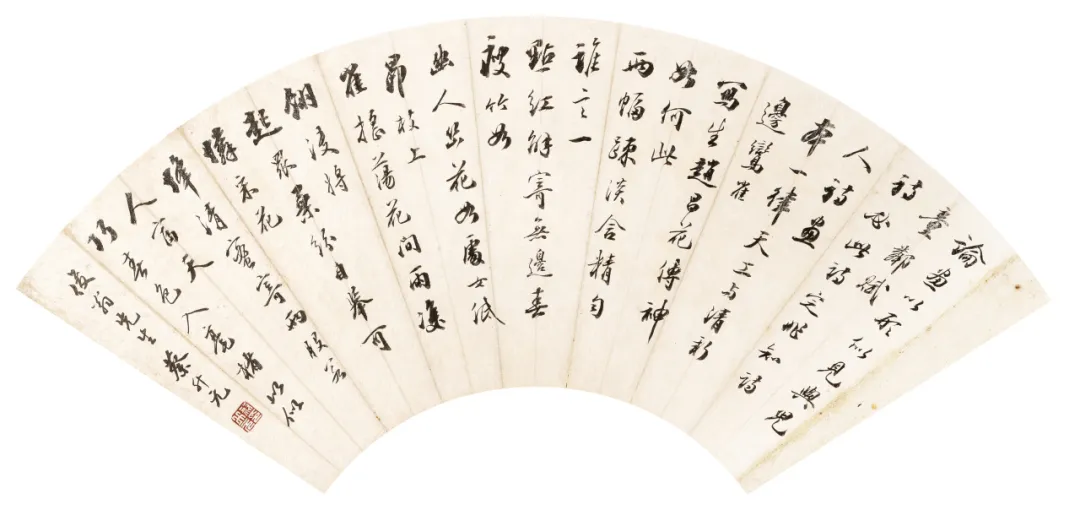 論畫以形似見與兒
童鄰賦
詩必此詩定非知詩
人詩畫
本一律天工與清新
邊鸞雀
寫生趙昌花傳神
如何此
兩幅疎淡含精勻
誰言一
點紅解寄無邊春
瘦竹如
幽人幽花如處女低
昂枝上
雀搖蕩花間雨雙
翎決將
起眾葉紛自舉可
憐采花
蜂清蜜寄兩股若
人富天
巧春色入毫楮以似
翁先生 蔡升元